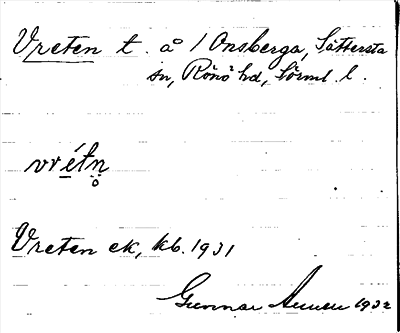 Vreten t. å 1 Onsberga, Sättersta
sn, Rönö hd, Sörml. l.
vrétn̥
Vreten ek, kb. 1931
Gunnar 1932